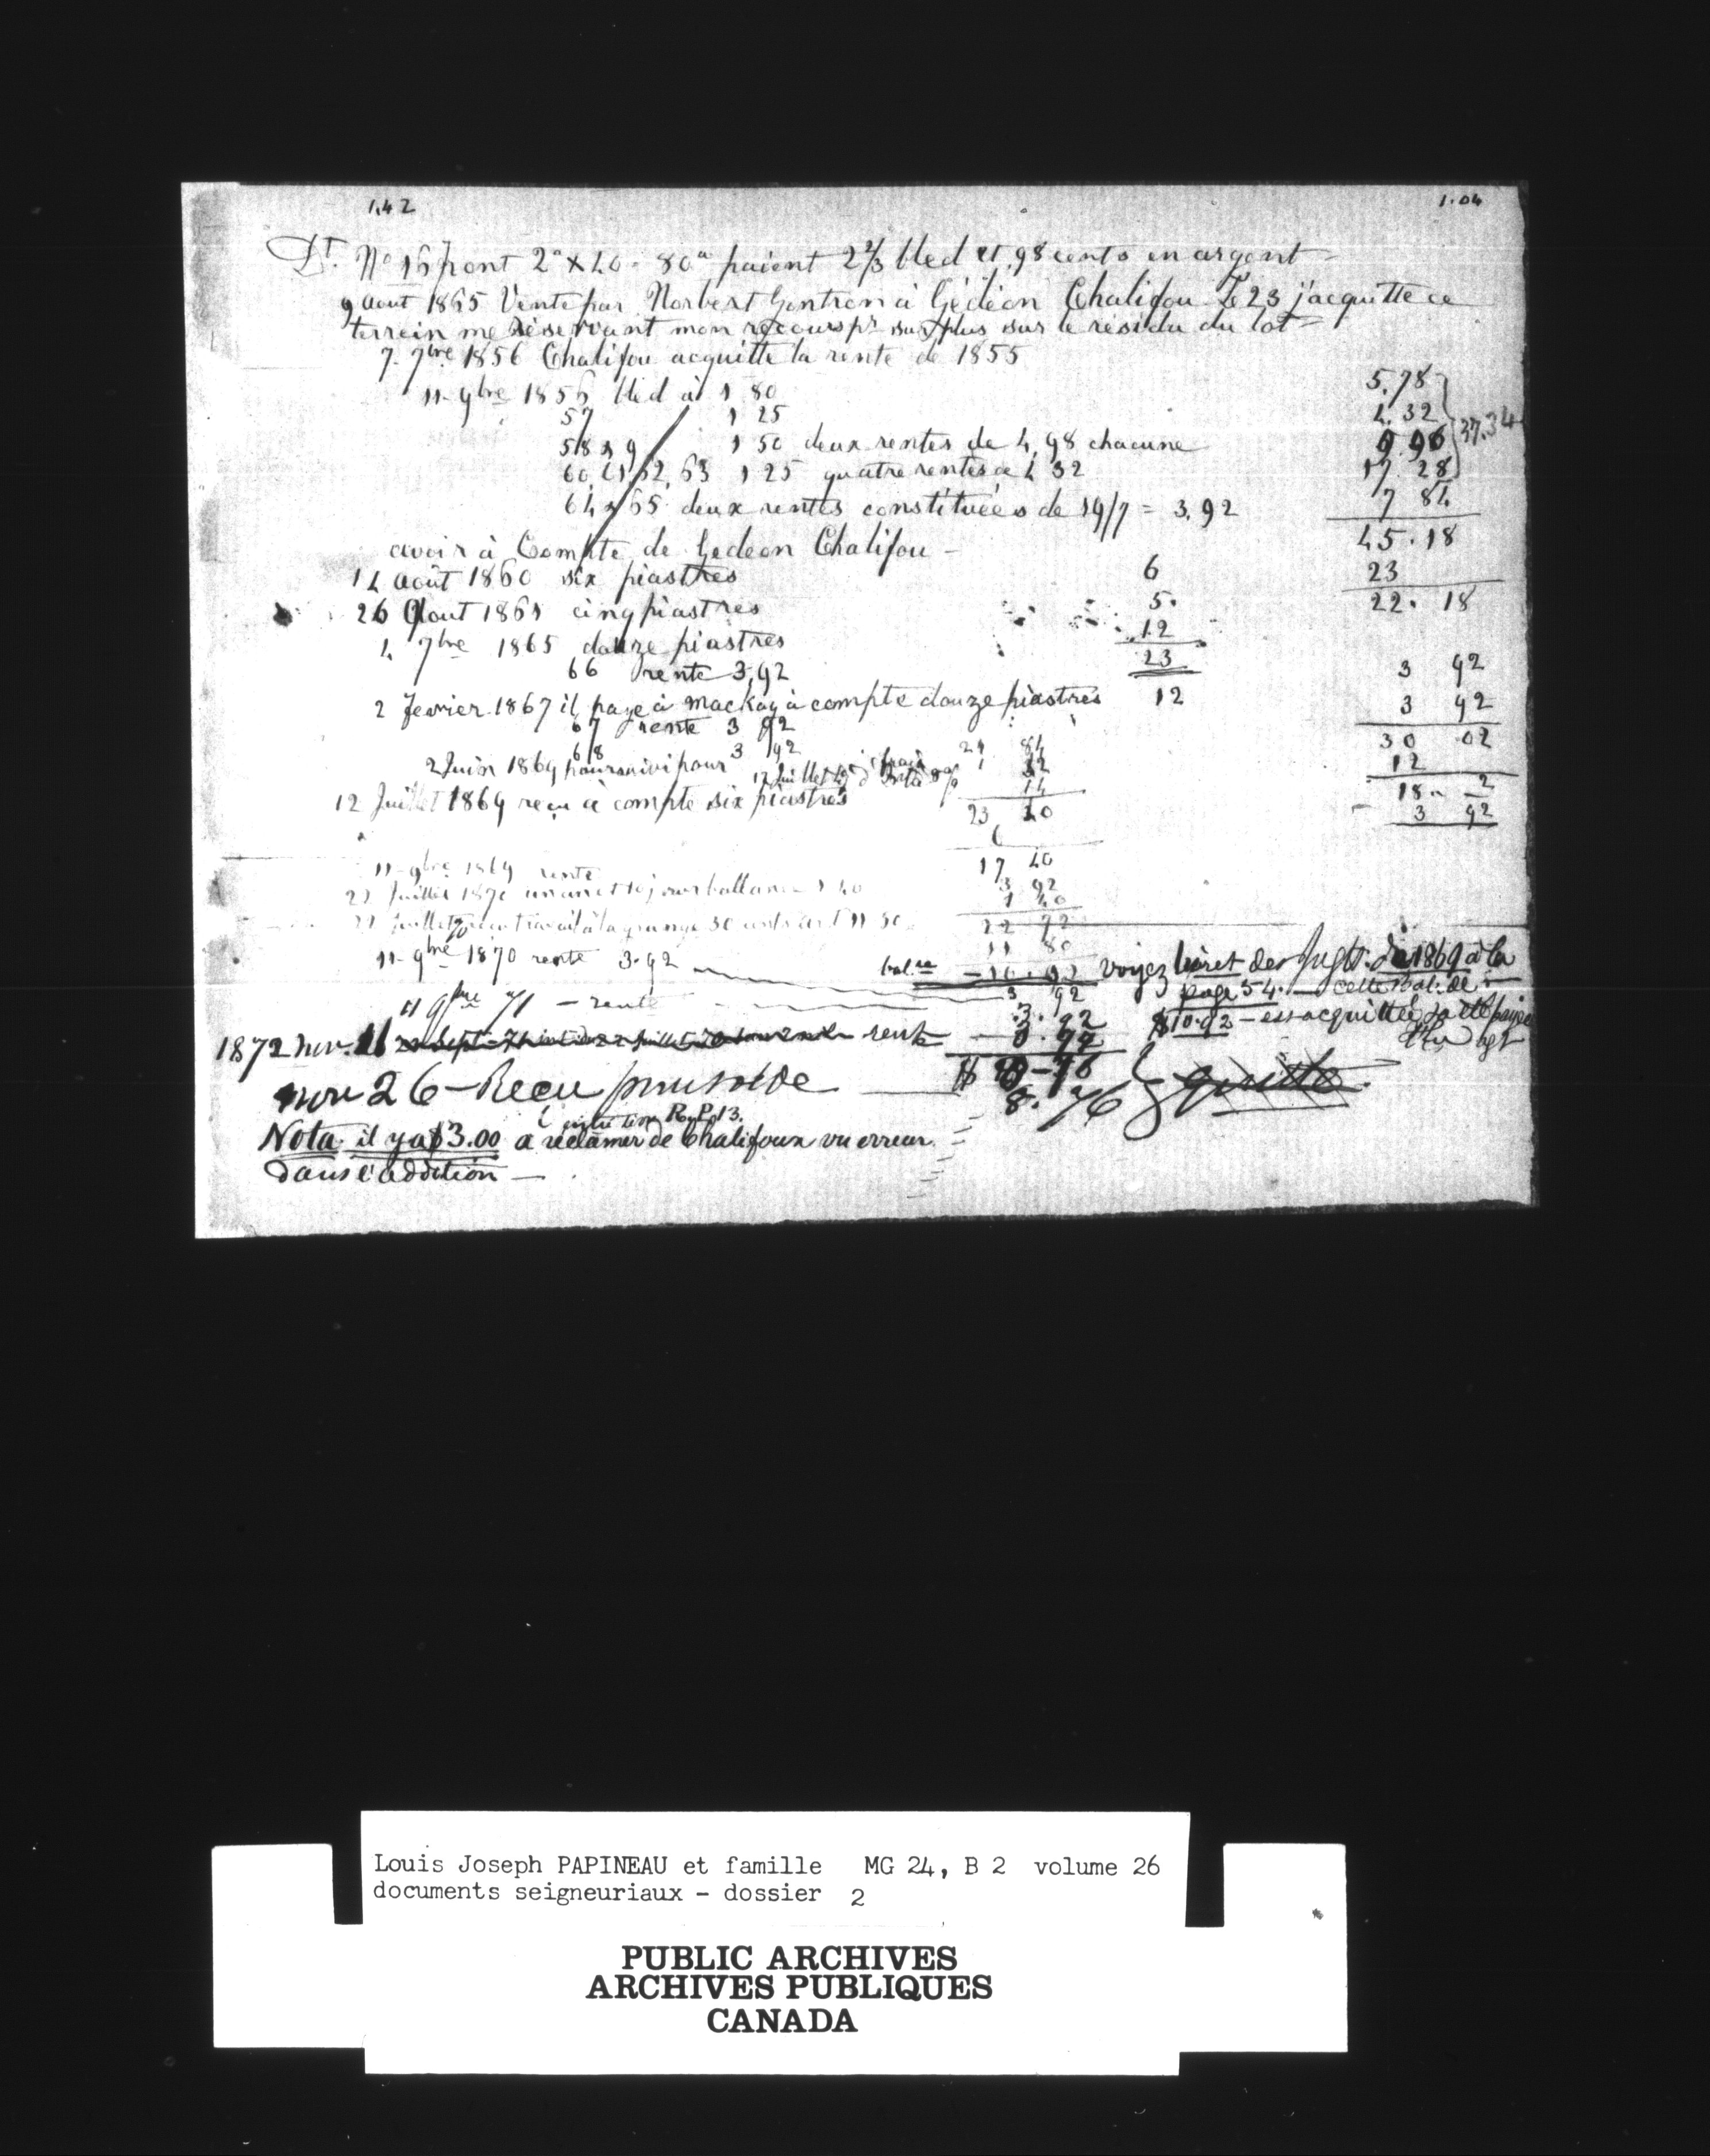 1.42 1.04
Dt. No 16 front 2a x 40 - 80a paient 2 2/3 bled et 98 cents en argent
9 aout 1865 Vente par Norbert Gontron à Gédéon Chalifou Le 23 j'acquitte ce
terrein me réservant mon recours pr surplus sur le résidu du lot
7. 7bre 1856 Chalifou acquitte la rente de 1855
11 9bre 1856 bled à 1 80 5.78
57 1 25 4.32 37.34
58 & 9 1 50 deux rentes de 4,98 chacune 9.96
60, 61, 62, 63 1 25 quatre rentes de 4 32 17 28
64 & 65 deux rentes constituées de 19/7 = 3,92 7 84
avoir à Compte de Gedeon Chalifou 45.18
14 Août 1860 six piastres 6 23
26 Aout 1861 cinq piastres 5. 22.18
4 7bre 1865 douze piastres 12
66 rente 3,92 23 3 92
2 Fevrier 1867 il paye à Mackay à compte douze piastres 12 3 92
67 rente 3 92 30 02
68 3 92 21 84 12
2 Juin 1869 poursuivi pour 1 32 18 2
12 Juillet 1869 reçu à compte six piastres 14 3 92
23 40
6
17 40
11 9bre 1869 rente 3 92
22 Juillet 1870 un an et 10 jours ballance 1 40 1 40
21 juillet 22 72
11 80
11 9bre 1870 rente 3.92 balce 10.92 voyez livret des Jugts. de 1869 à la
11 9bre 71 - rente 3 92 page 54. - cette Bal. de
3.92 $10.92 - est acquittée
1872 nov. 11 rente 0.92
nov 26 - Recu pour solde $ 8.76 quitte
Nota il ya $3.00 a réclamer de Chalifoux vu erreur
dans l'addition
Louis Joseph PAPINEAU et famille MG 24, B 2 volume 26
documents seigneuriaux - dossier 2
PUBLIC ARCHIVES
ARCHIVES PUBLIQUES
CANADA